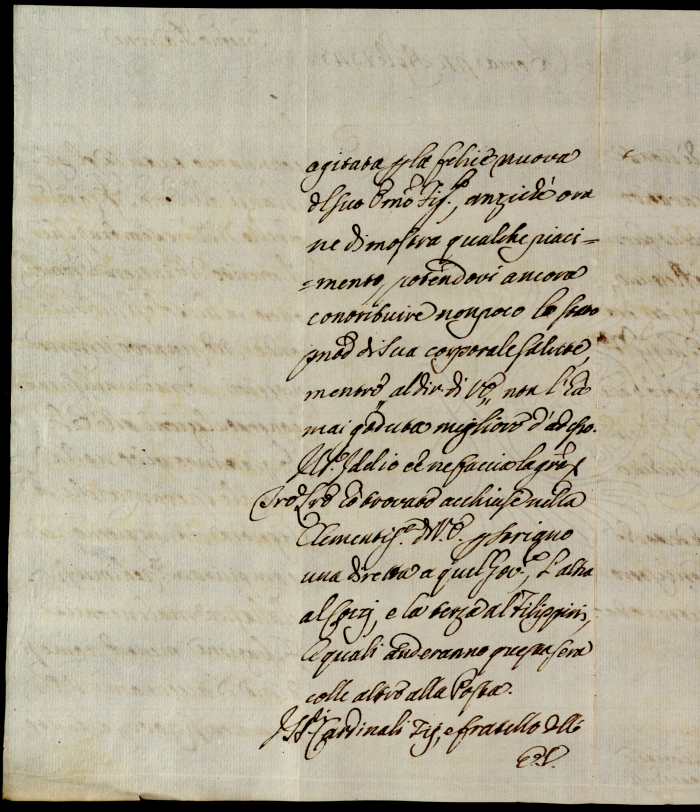 agitata p la felice nuova
del suo Emo Zij.º, anziché ora
ne dimostra qualche piaci=
=mento, potendovi ancora
contribuire non poco lo stato
pnte di sua corporale salute,
mentre, al dir di VE, non l'ha
mai goduta migliore d'adesso.
Iddio ce ne faccia la
Tre Lre ho trovato acchiuse nella
Clementis.ª di VE. p Serigno
una diretta a quel Gov.re, l'altra
al , e la terza al Filippini,
le quali anderanno questa sera
colle altre alla Posta.
Cardinali Zij, e fratello dell'
E.V.